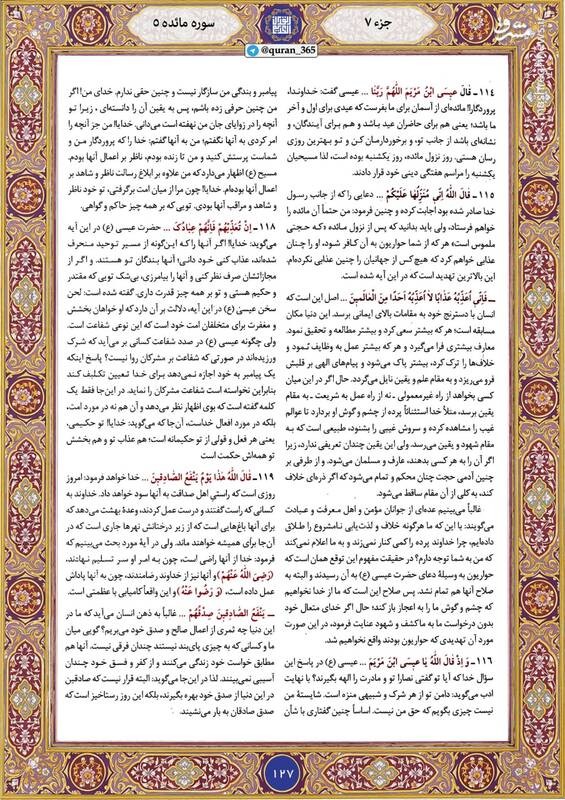 جزء ۷
سوره مائده ۵
@quran_365
مشرق
۱۱۴ـ قالَ عیسَی ابْنُ مَرْیَمَ اللّهُمَّ رَبَّنا ... عیسی گفت: خداوندا،
پروردگارا! مائده‌ای از آسمان برای ما بفرست که عیدی برای اول و آخر
ما باشد؛ یعنی هم برای حاضران عید باشد و هم برای آیندگان، و
نشانه‌ای باشد از جانب تو، و برخوردارمان کن و تو بهترین روزی
رسان هستی. روز نزول مائده، روز یکشنبه بوده است، لذا مسیحیان
یکشنبه را مراسم هفتگی دینی خود قرار دادند.
۱۱۵ـ قالَ اللهُ اِنّی مُنَزِّلُها عَلَیْکُمْ ... دعایی را که از جانب رسول
خدا صادر شده بود اجابت کرده و چنین فرمود: من حتماً آن مائده را
خواهم فرستاد، ولی باید بدانید که پس از نزول مـائده ـ که حـجتی
ملموس است ـ هر که از شما حواریون به آن کافر شود، او را چنان
عذابی خواهم کرد که هیچ‌کس از جهانیان را چنین عذابی نکرده‌ام.
این بالاترین تهدید است که در این آیه شده است.
ـ فَاِنّی اُعَذِّبُهُ عَذابًا لا اُعَذِّبُهُ اَحَدًا مِنَ الْعالَمینَ ... اصل این است که
انسان با دسترنج خود به مقامات بالای ایمانی برسد. این دنیا مکان
مسابقه است؛ هر که بیشتر سعی کرد و بیشتر مطالعه و تحقیق نمود،
معارف بیشتری فرا می‌گیرد و هر که بیشتر عمل به وظائف نمود و
خلاف‌ها را ترک کرد، بیشتر پاک می‌شود و پیام‌های الهی بر قلبش
فرو می‌ریزد و به مقام علم و یقین نایل می‌گردد. حال اگر در این میان
کسی بخواهد از راه غیرمعمولی ـ نه از راه عمل به شریعت ـ به مقام
یقین برسد، مثلاً خدا استثنائاً پرده از چشم و گوش او بردارد تا عوالم
غیب را مشاهده کرده و سروش غیبی را بشنود، طبیعی است که بـه
مقام شهود و یقین می‌رسد. ولی این یقین چندان تعریفی ندارد، زیرا
اگر آن را به هر کسی بدهند، عارف و مسلمان می‌شود. و از طرفی بر
چنین آدمی حجت چنان محکم و تمام می‌شود که اگر ذره‌ای خلاف
کند، به کلی از آن مقام ساقط می‌شود.
غالباً می‌بینیم عده‌ای از جوانان مؤمن و اهل مـعرفت و عبادت
می‌گویند: با این که ما هرگونه خلاف و لذت‌یابی نامشروع را طـلاق
داده‌ایم، چرا خداوند پرده را کمی کنار نمی‌زند و به ما اعلام نمی‌کند
که من به شما توجه دارم؟ در حقیقت مفهوم این توقع همان است که
حواریون به وسیلهٔ دعای حضرت عیسی (ع) به آن رسیدند و البته به
صلاح آنها هم تمام نشد. پس صلاح این است که ما از خدا نخواهیم
که چشم و گوش ما را به اعجاز باز کند؛ حال اگر خدای متعال خود
بدون درخواست ما به ما کشف و شهود عنایت فرمود، در این صورت
مورد آن تهدیدی که حواریون بودند واقع نخواهیم شد.
۱۱۶ـ وَ اِذْ قالَ اللهُ یا عیسَی ابْنَ مَرْیَمَ ... عیسی (ع) در پاسخ این
سؤال خدا که آیا تو گفتی نصارا تو و مادرت را الهه بگیرند؟ با نهایت
ادب می‌گوید: دامن تو از هر شرک و شبیهی منزه است. شایستهٔ من
نیست چیزی بگویم که حق من نیست. اساساً چنین گفتاری با شأن
پیامبر و بندگی من سازگار نیست و چنین حقی ندارم. خدای من! اگر
من چنین حرفی زده باشم، پس به یقین آن را دانسته‌ای، زیـرا تـو
آنچه را در زوایای جان من نهفته است می‌دانی. خدایا! من جز آنچه را
امر کردی به آنها نگفتم؛ من به آنها گفتم: خدا را که پروردگار مـن و
شماست پرستش کنید و من تا زنده بودم، ناظر بر اعمال آنها بودم.
مسیح (ع) اظهار می‌دارد که من علاوه بر ابلاغ رسالت ناظر و شاهد بر
اعمال آنها بوده‌ام. خدایا! چون مرا از میان امت برگرفتی، تو خود ناظر
و شاهد و مراقب آنها بودی. تویی که بر همه چیز حاکم و گواهی.
۱۱۸ـ اِنْ تُعَذِّبْهُمْ فَاِنَّهُمْ عِبادُکَ ... حضرت عیسی (ع) در این آیه
می‌گوید: خدایا! اگـر آنهـا را کـه این‌گونه از مسیر تـوحید منحرف
شده‌اند، عذاب کنی خود دانی؛ آنها بندگان تو هستند. و اگـر از
مجازاتشان صرف نظر کنی و آنها را بیامرزی، بی‌شک تویی که مقتدر
و حکیم هستی و تو بر همه چیز قدرت داری. گفته شده است: لحن
سخن عیسی (ع) در این آیه، دلالت بر آن دارد که او خواهان بخشش
و مغفرت برای متخلفان امت خود است که این نوعی شفاعت است.
ولی چگونه عیسی (ع) در صدد شفاعت کسانی بر می‌آید که شـرک
ورزیده‌اند در صورتی که شفاعت بر مشرکان روا نیست؟ پاسخ اینکه
یک پیامبر به خود اجازه نمی‌دهد برای خـدا تـعیین تکلیف کـند
بنابراین نخواسته است شفاعت مشرکان را نماید. در این‌جا فقط یک
کلمه گفته است که بوی اظهار نظر می‌دهد و آن هم نه در مورد امت،
بلکه در مورد افعال خداست، آن‌جا که می‌گوید: خدایا! تو حکیمی،
یعنی هر فعل و قولی از تو حکیمانه است؛ هم عذاب تو و هم بخشش
تو همه‌اش حکمت است
۱۱۹ـ قالَ اللهُ هذا یَوْمُ یَنْفَعُ الصّادِقینَ ... خدا خواهد فرمود: امروز
روزی است که راستیِ اهل صداقت به آنها سود خواهد داد. خداوند به
کسانی که راست گفتند و درست عمل کردند، وعدهٔ بهشت می‌دهد که
برای آنها باغ‌هایی است که از زیر درختانش نهرها جاری است که در
آن‌جا برای همیشه خواهند ماند. ولی در آیهٔ مورد بحث می‌بینیم که
فرمود: خدا از آنها راضی است، چون به امر او سر تسلیم نهادند،
(رَضِیَ اللهُ عَنْهُمْ) و آنها نیز از خداوند رضامندند، چون به آنها پاداش
عمل داده است، (وَ رَضُوا عَنْهُ) و این واقعاً کامیابی با عظمتی است.
ـ یَنْفَعُ الصّادِقینَ صِدْقُهُمْ ... غالباً به ذهن انسان می‌آید که ما در
این دنیا چه ثمری از اعمال صالح و صدق خود می‌بریم؟ گویی میان
ما و کسانی که به چیزی پای‌بند نیستند چندان فرقی نیست. آنها هم
مطابق خواست خود زندگی می‌کنند و از کفر و فسق خود چندان
آسیبی نمی‌بینند. لذا در این‌جا می‌گوید: البته قرار نیست که صادقین
در این دنیا از صدق خود بهره بگیرند، بلکه این روز رستاخیز است که
صدق صادقان به بار می‌نشیند.
۱۲۷